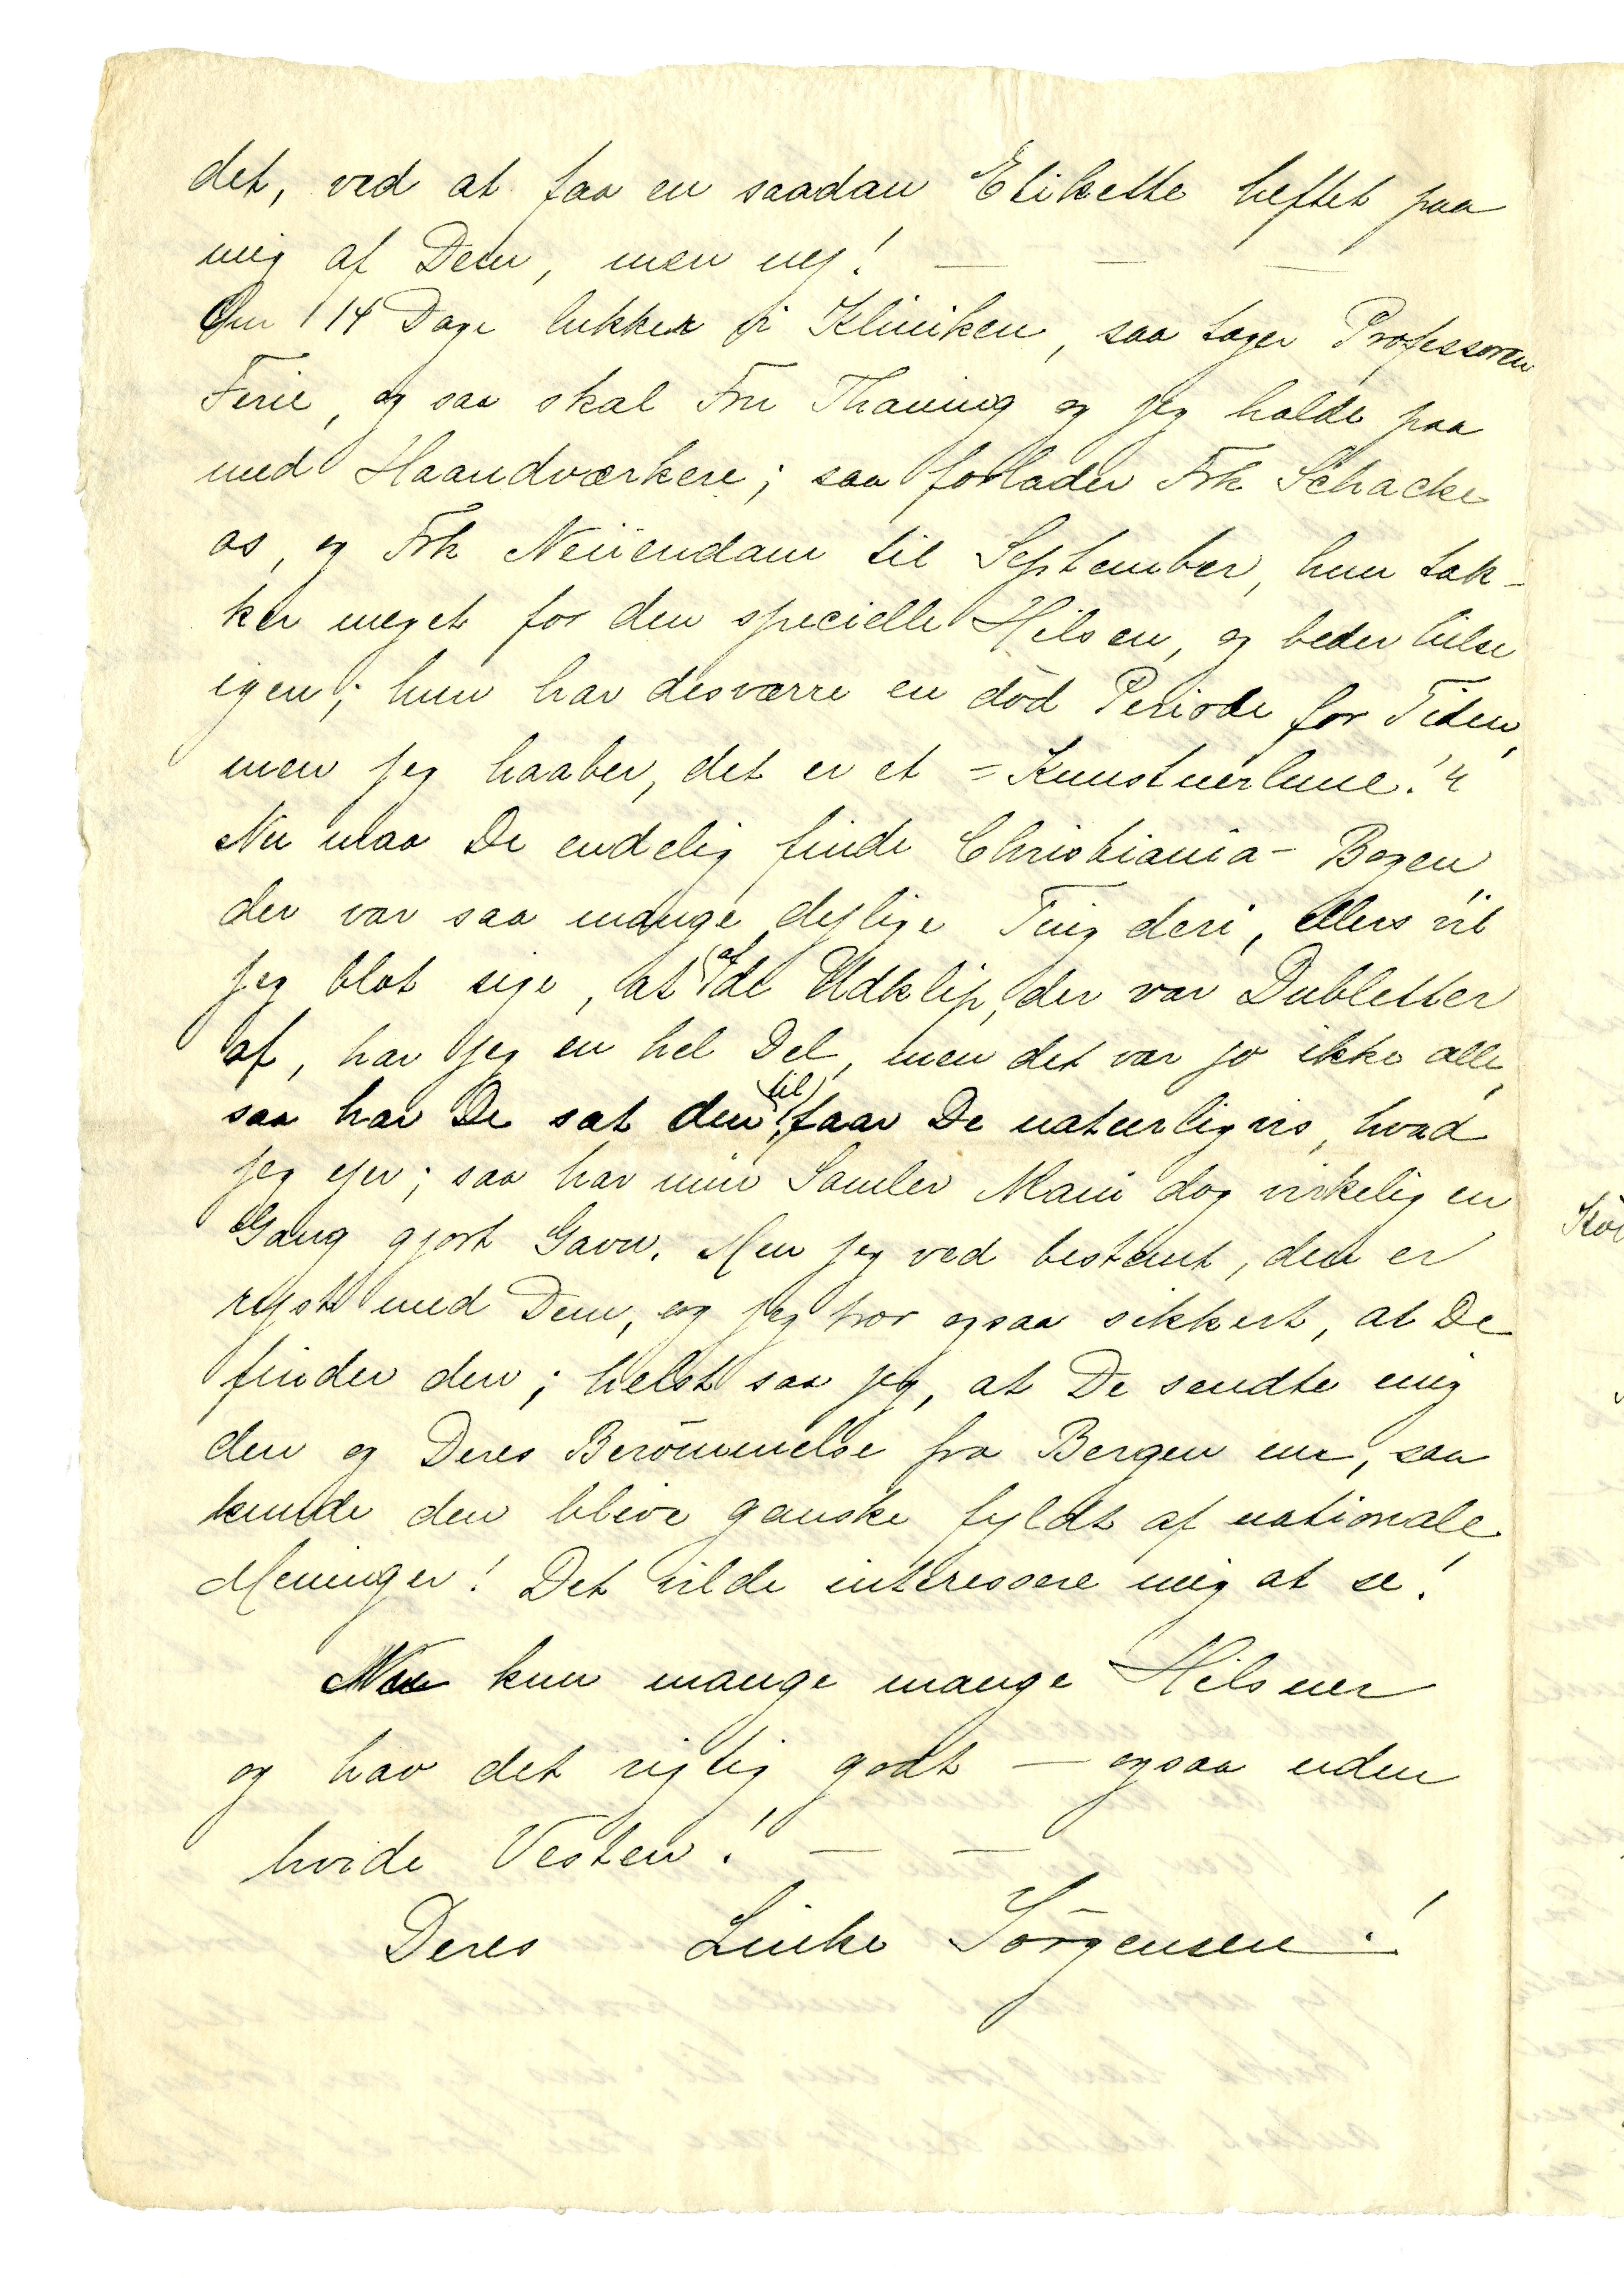 det, ved at faa en saadan Etikette heftet paa
mig af Dem, men nej! — — —
Om 14 Dage lukker vi Kliniken, saa tager Professoren
Ferie, og saa skal Fru Thaning og jeg holde paa
med Haandværkere; saa forlader Frk Schacke
os, og Frk Neiiendam til September, hun tak-
ker meget for den specielle Hilsen, og beder hilse
igen; hun har desværre en död Periode for Tiden,
men jeg haaber, det er et "Kunstnerlune!"
Nu maa De endelig finde Christiania-Bogen
der var saa mange dejlige Ting deri, ellers vil
jeg blot sige, at af de Udklip, der var Dubletter
af, har jeg en hel Del, men det var jo ikke alle,
saa har De sat den til, faar De naturligvis, hvad
jeg ejer; saa har min Samler Mani dog virkelig en
Gang gjort Gavn. Men jeg ved bestemt, den er
rejst med Dem, og jeg tror ogsaa sikkert, at De
finder den; helst saa jeg, at De sendte mig
den og Deres Berömmelse fra Bergen
kunde den blive ganske fyldt af nationale
Meninger! Det vilde interessere mig at se!
Nu kun mange mange Hilsner
og hav det rigtig godt — ogsaa uden
hvide Vesten! — —
Deres Linke Jörgensen!